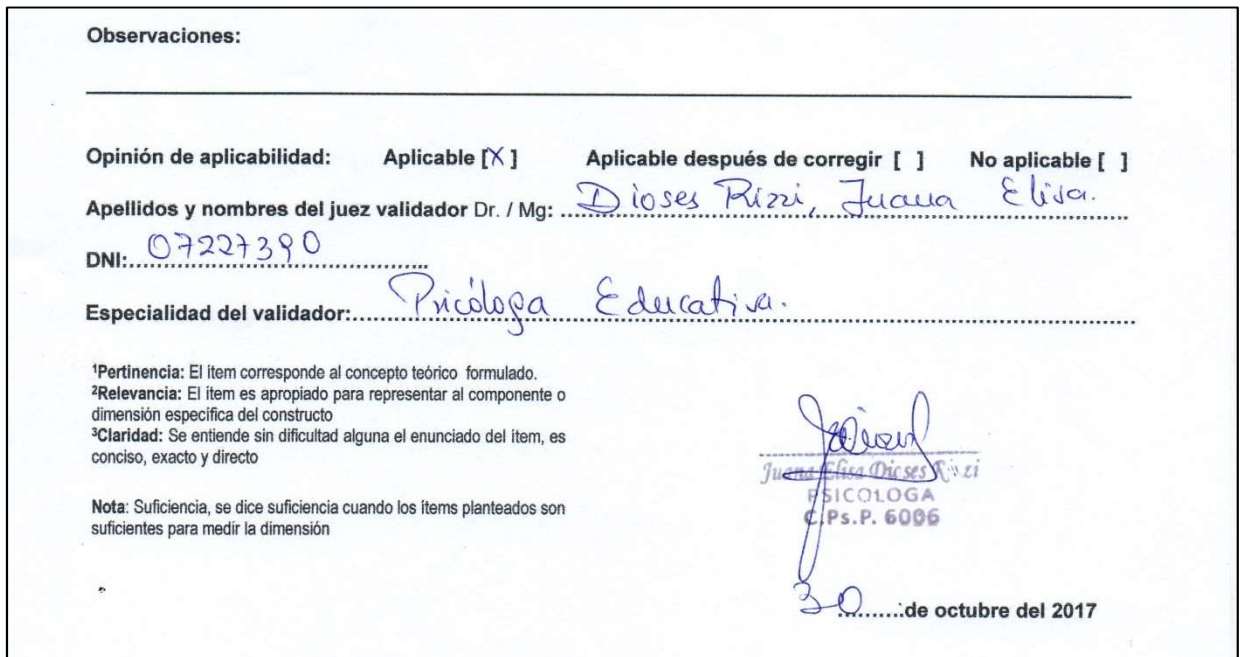 Observaciones:
Opinión de aplicabilidad: Aplicable [X] Aplicable después de corregir [ ] No aplicable [ ]
Apellidos y nombres del juez validador Dr. / Mg: Dioses Rizzi, Juana Elisa.
DNI: 07227390
Especialidad del validador: Psicóloga Educativa.
¹Pertinencia: El ítem corresponde al concepto teórico formulado.
²Relevancia: El ítem es apropiado para representar al componente o
dimensión específica del constructo
³Claridad: Se entiende sin dificultad alguna el enunciado del ítem, es
conciso, exacto y directo
Nota: Suficiencia, se dice suficiencia cuando los ítems planteados son
suficientes para medir la dimensión
Juana Elisa Dioses Rizzi
PSICOLOGA
C.Ps.P. 6006
30 de octubre del 2017